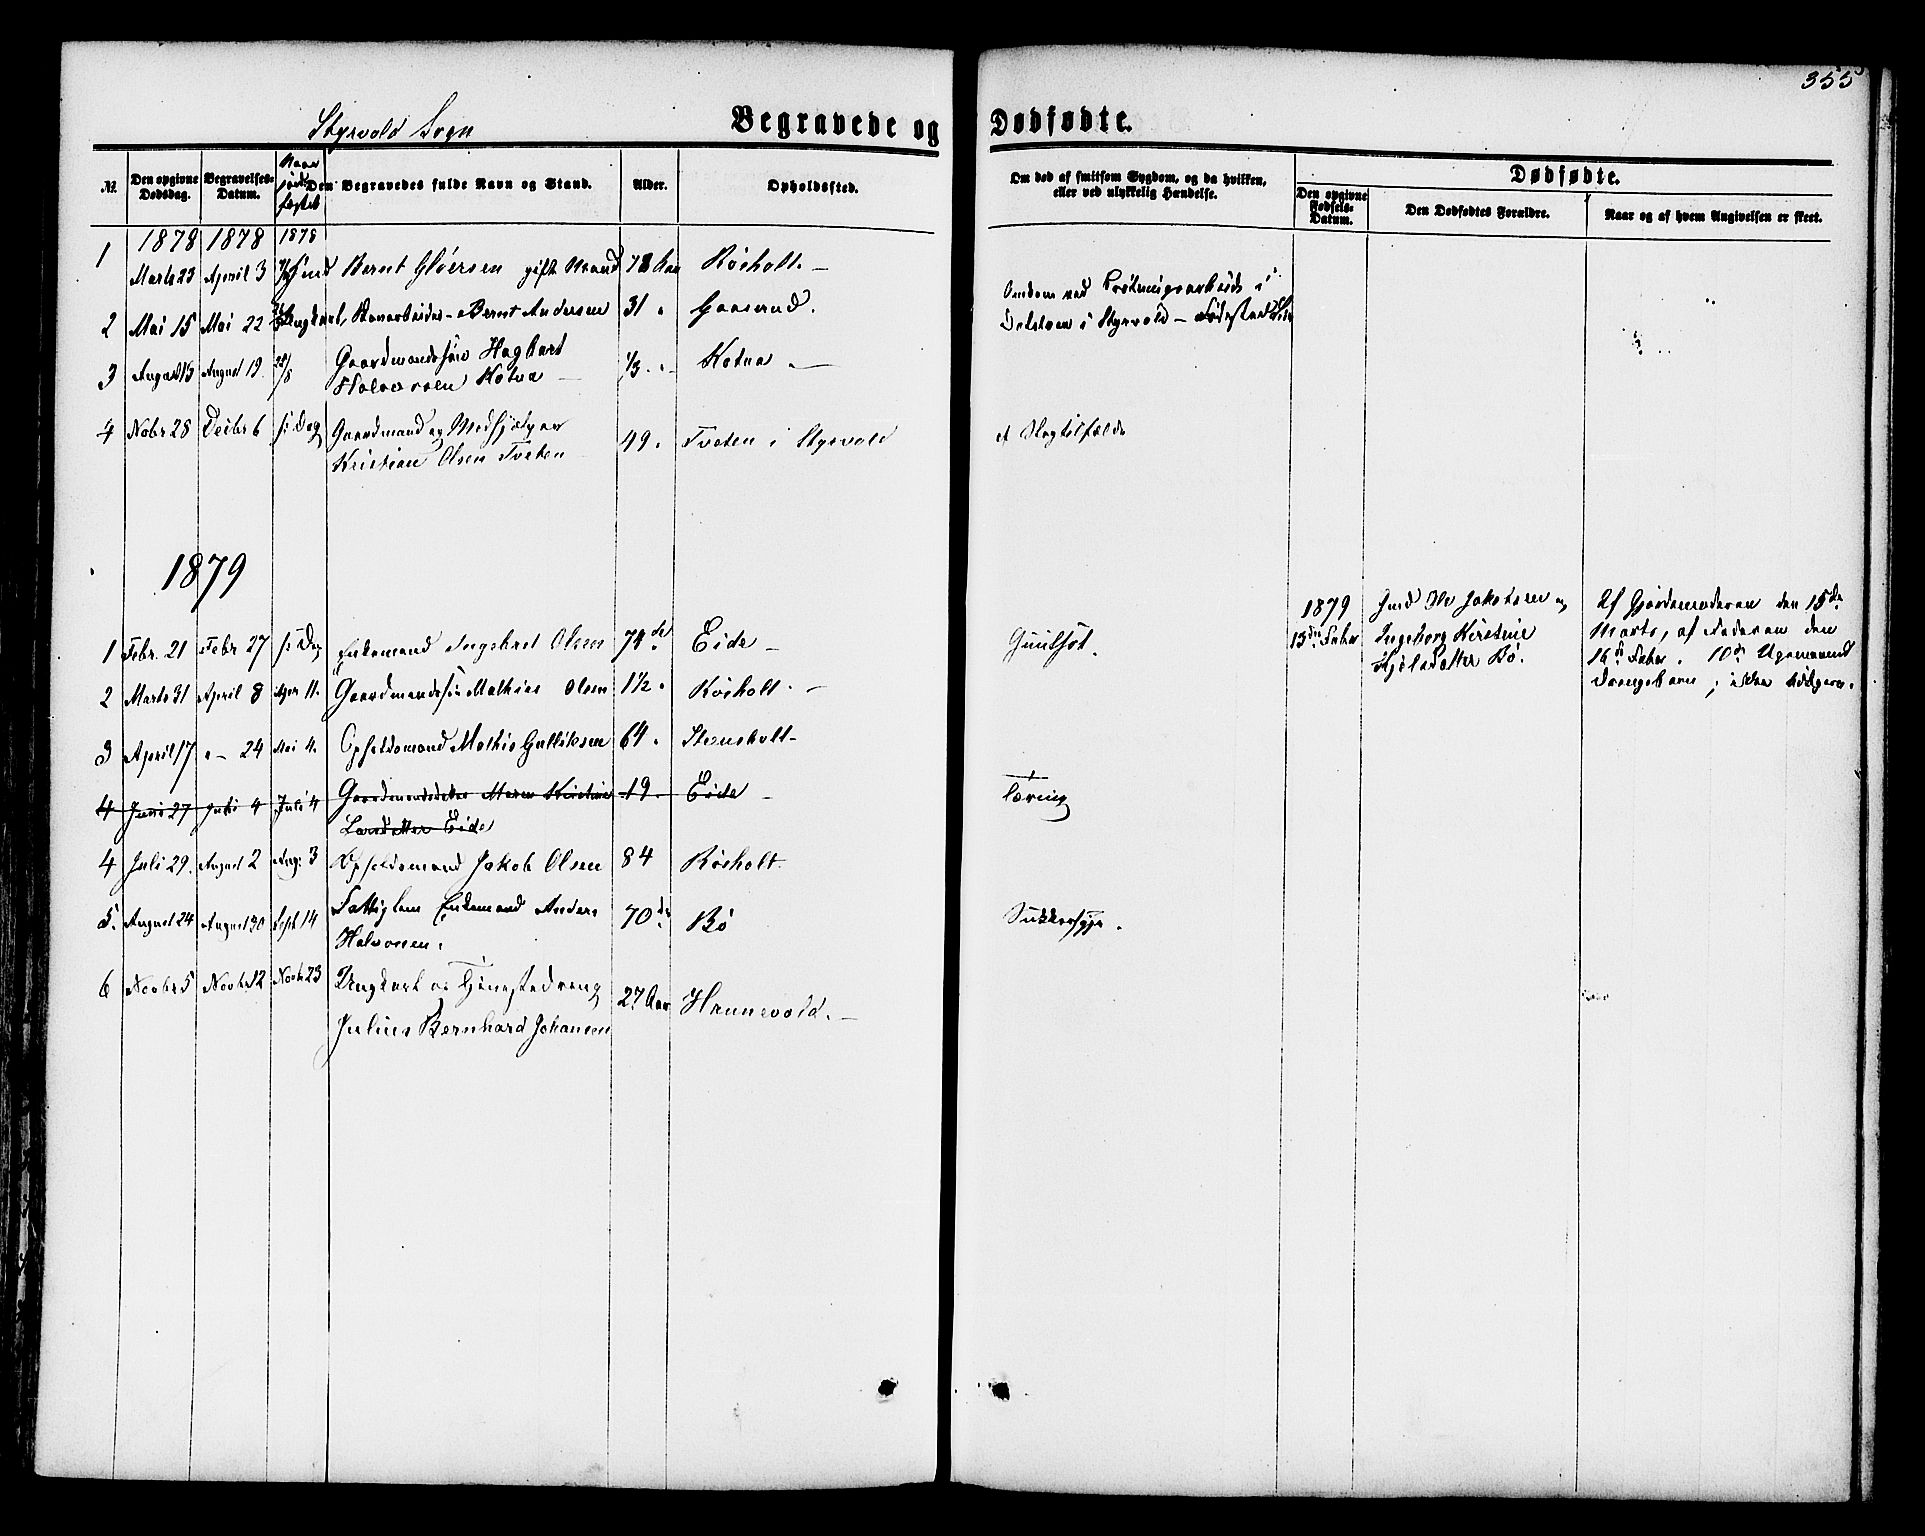 355
Styrvold Sogn
Begravede og Dødfødte.
№.
Den opgivne Dødsdag.
Begravelses-Datum.
Naar
fæstet
Den Begravedes fulde Navn og Stand.
Alder.
Opholdssted.
Om død af smitsom Sygdom, og da hvilken,
eller ved ulykkelig Hændelse.
Dødfødte.
Den opgivne Fødsels-Datum.
Den Dødfødtes Forældre.
Naar og af hvem Angivelsen er skeet.
1878 1878 1878
1 Marts 23 April 3 Bernt Gløersen gift Mand 78 Aar Røsholt. –
2 Mai 15 Mai 22 Ungkarl, Bernt Andersen 31 " Gaaserud.
Omkom ved i
i Styrvold – Fødested
3 August 13 August 19 25/8 Gaardmandssøn Hagbart
Halvorsen Kotna – 1/3 " Kotna –
4 Nobr 28 Decbr 6 s: Dag Gaardmand og Medhjælper
Kristian Olsen Tveten 49 " Tveten i Styrvold
et Slagtilfælde
1879
1 Febr. 21 Febr 27 s: Dag Enkemand Ingebret Olsen 74de Eide –
Guulsot.
1879
13de Febr
Jakobsen og
Ingeborg Kirstine
Kjelsdatter Bø.
Af Gjordemoderen den 15de
Marts, af Faderen den
16de Febr. 10de
Drengebarn; ikke
2 Marts 31 April 8 Apr 11. Gaardmandssøn Mathias Olsen 1½ " Røsholt. –
3 April 17 " – 24 Mai 4. Opholdsmand Mathis Gulliksen 64 " Stensholt –
4 Juni 27 Juli 4 Juli 4 Gaardmandsdatter Maren Kirstine 19. Eide –
Larsdatter Eide
Tæring
4 Juli 29. August 2 Aug: 3 Opholdsmand Jakob Olsen 84 Røsholt.
5. August 24 August 30 Sept 14 Fattiglem Enkemand Anders 70de Bø
Halvorsen.
Sukkersyge.
6 Novbr 5 Novbr 12 Novbr 23 Ungkarl og Tjenestedreng
Julius Bernhard Johansen 27 Aar Hannevold. –